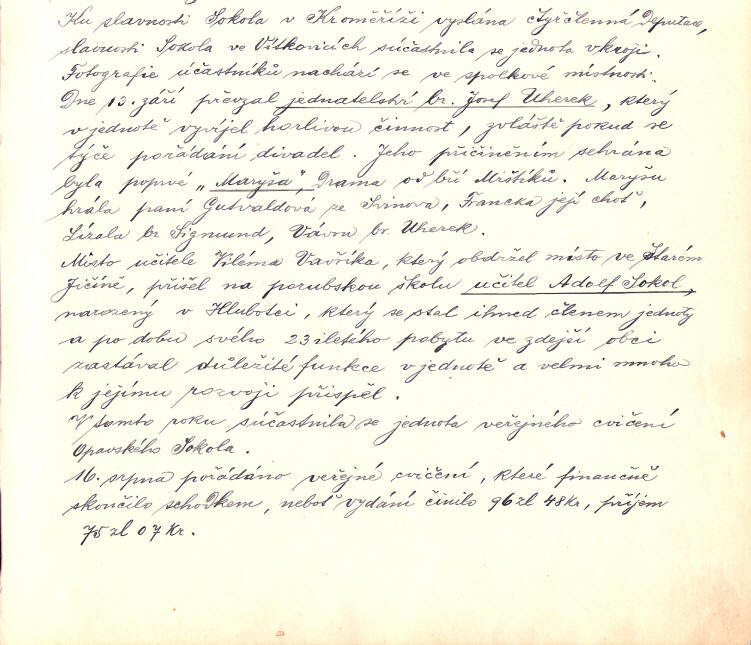 Ku slavnosti Sokola v Kroměříži vyslána čtyřčlenná Deputace,
slavnosti Sokola ve Vítkovicích súčastnila se jednota v kroji.
Fotografie účastníků nachází se ve spolkové místnosti.
Dne 13. září převzal jednatelství br. Josef Uherek, který
v jednotě vyvíjel horlivou činnost, zvláště pokud se
týče pořádání divadel. Jeho přičiněním sehrána
byla poprvé „Maryša", Drama od bří Mrštíků. Maryšu
hrála paní Gutvaldová ze Svinova, Francka její choť,
Lízala br Sigmund, Vávru br. Uherek.
Místo učitele Viléma Vavříka, který obdržel místo ve Starém
Jičíně, přišel na porubskou školu učitel Adolf Sokol,
narozený v Hlubočci, který se stal ihned členem jednoty
a po dobu svého 23 iletého pobytu ve zdejší obci
zastával důležité funkce v jednotě a velmi mnoho
k jejímu rozvoji přispěl.
V tomto roku súčastnila se jednota veřejného cvičení
Opavského Sokola.
16. srpna pořádáno veřejné cvičení, které finančně
skončilo schodkem, neboť vydání činilo 96 zl 48 kr, příjem
75 zl 07 Kr.